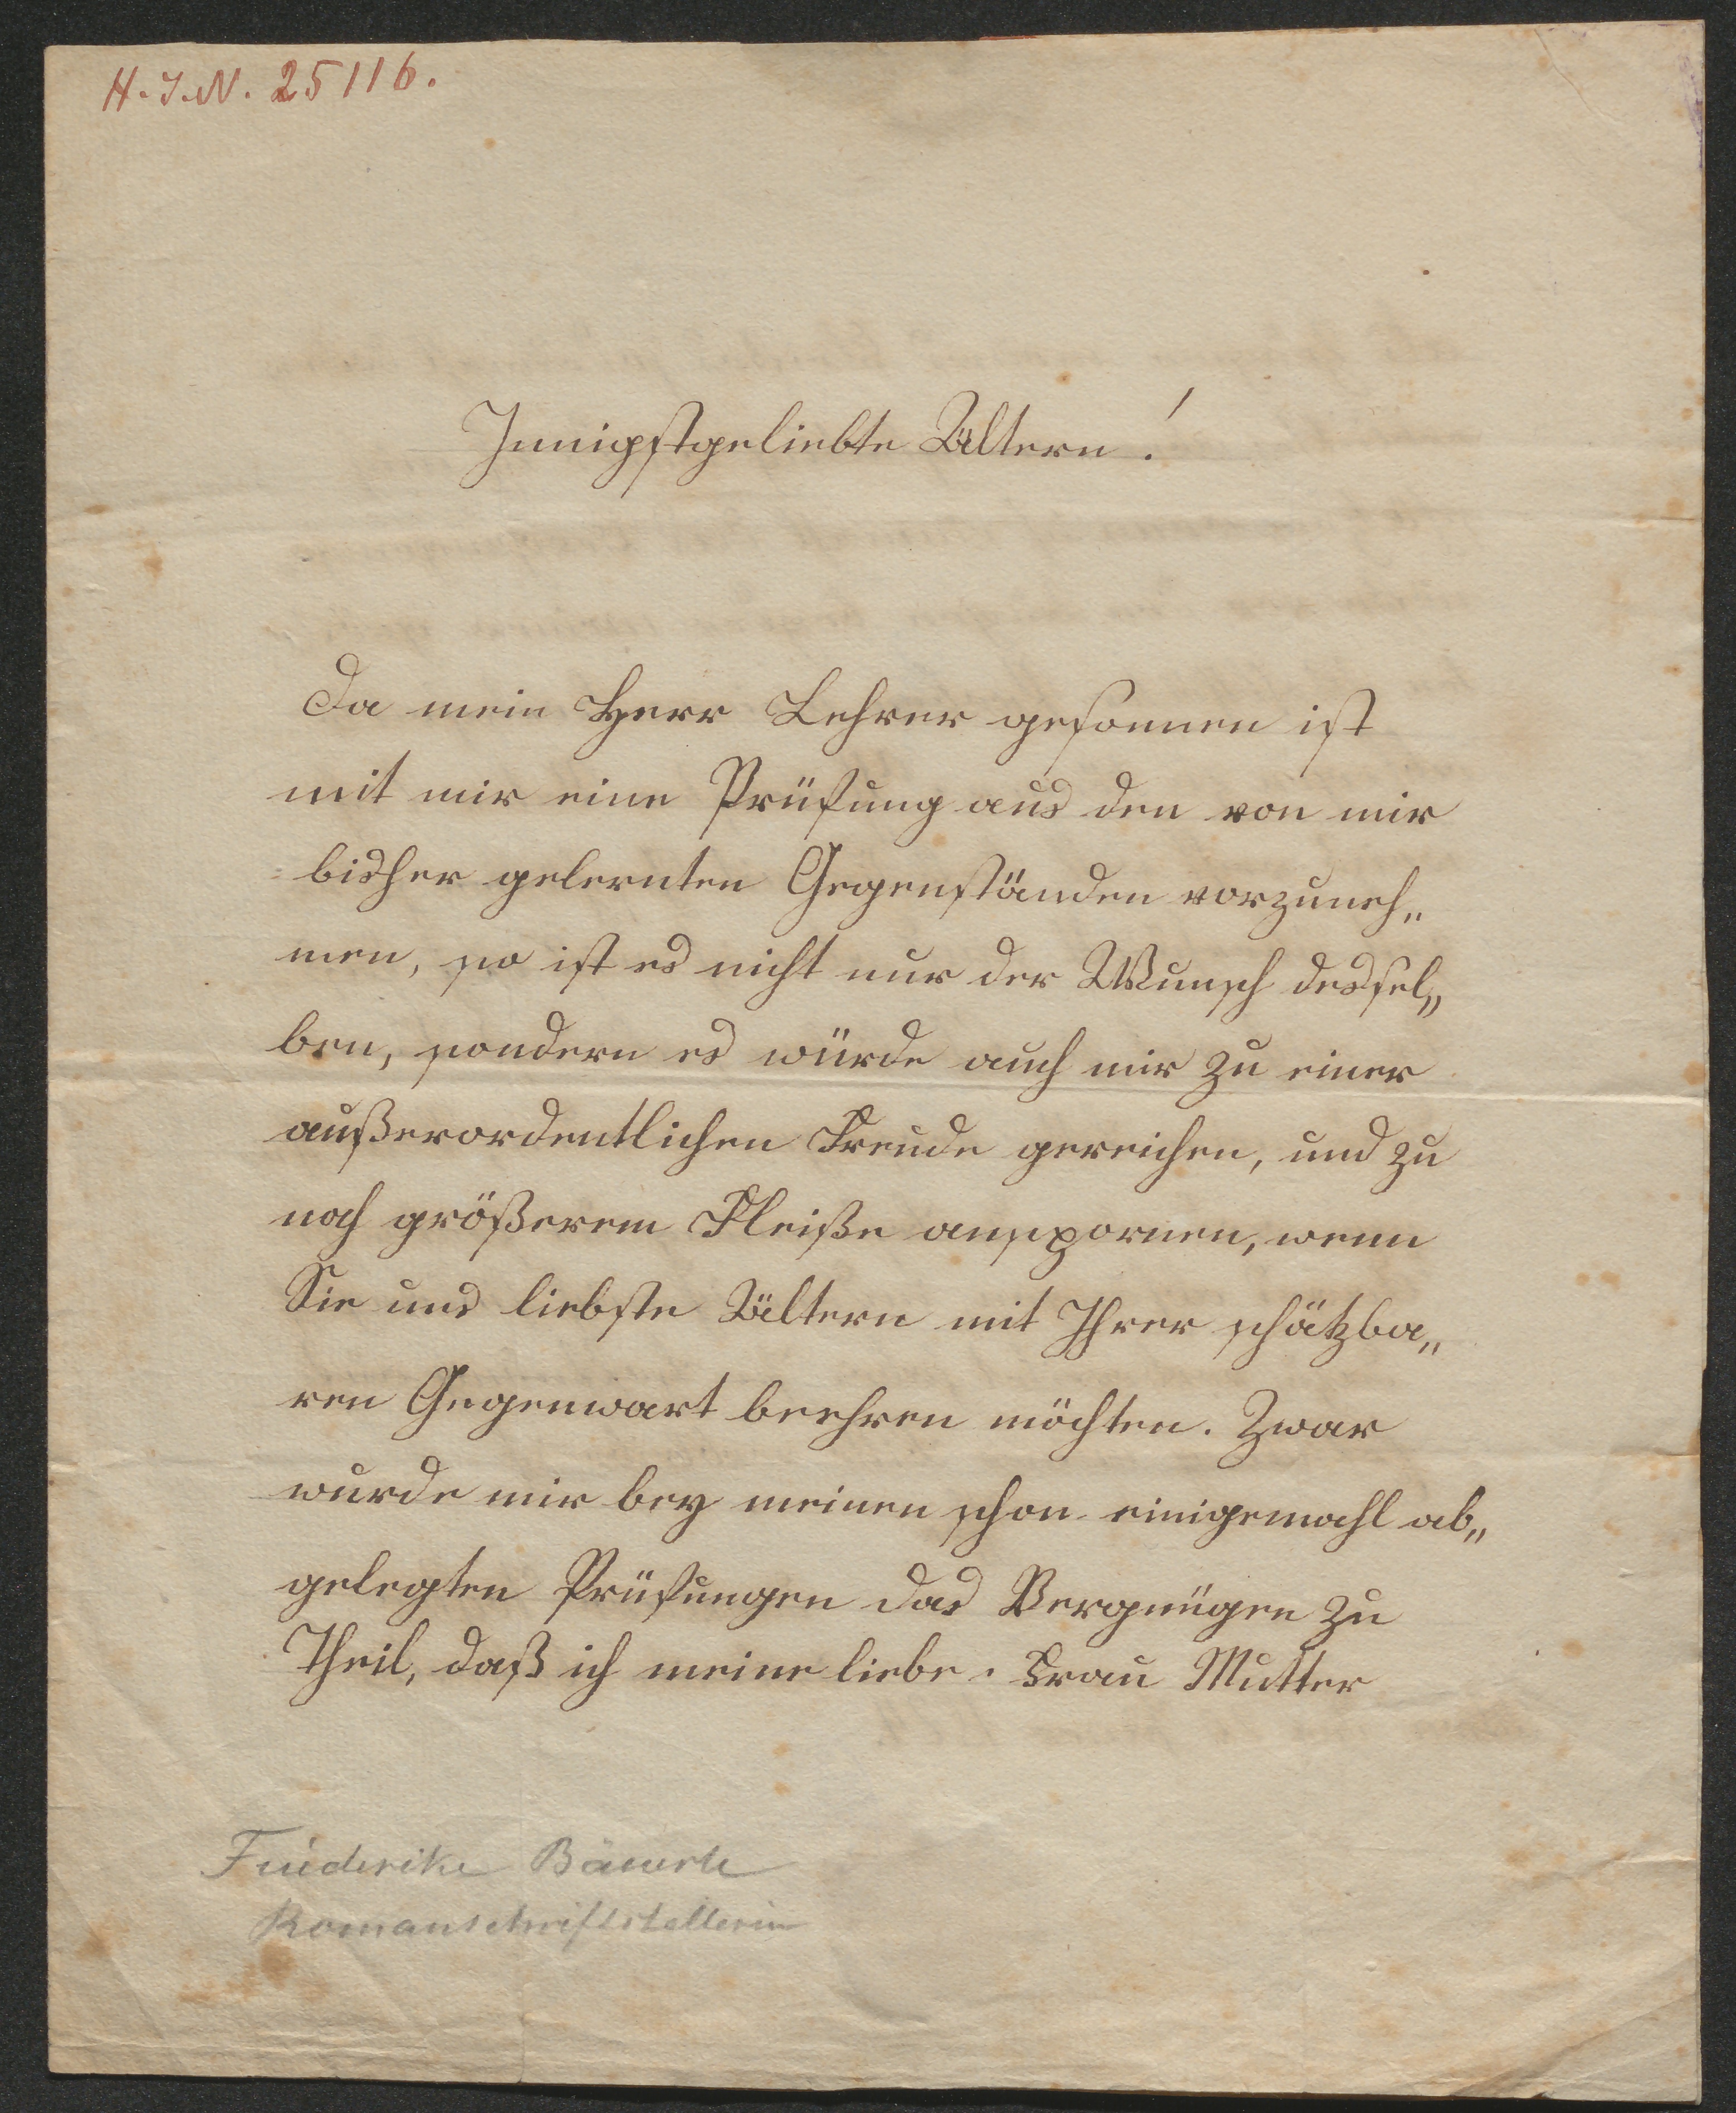 H.I.N. 25116.
Innigstgeliebte Ältern!
Da mein Herr Lehrer gesonnen ist
mit mir eine Prüfung aus den von mir
bisher gelernten Gegenständen vorzuneh„
men, so ist es nicht nur der Wunsch dessel„
ben, sondern es würde auch mir zu einer
außerordentlichen Freude gereichen, und zu
noch größerem Fleiße anspornen, wenn
Sie uns liebste Ältern mit Ihrer schätzba„
ren Gegenwart beehren möchten. Zwar
wurde mir bey meinen schon einigemahl ab„
gelegten Prüfungen das Vergnügen zu
Theil, daß ich meine liebe Frau Mutter
Friederike Bäuerle
Romanschriftstellerin